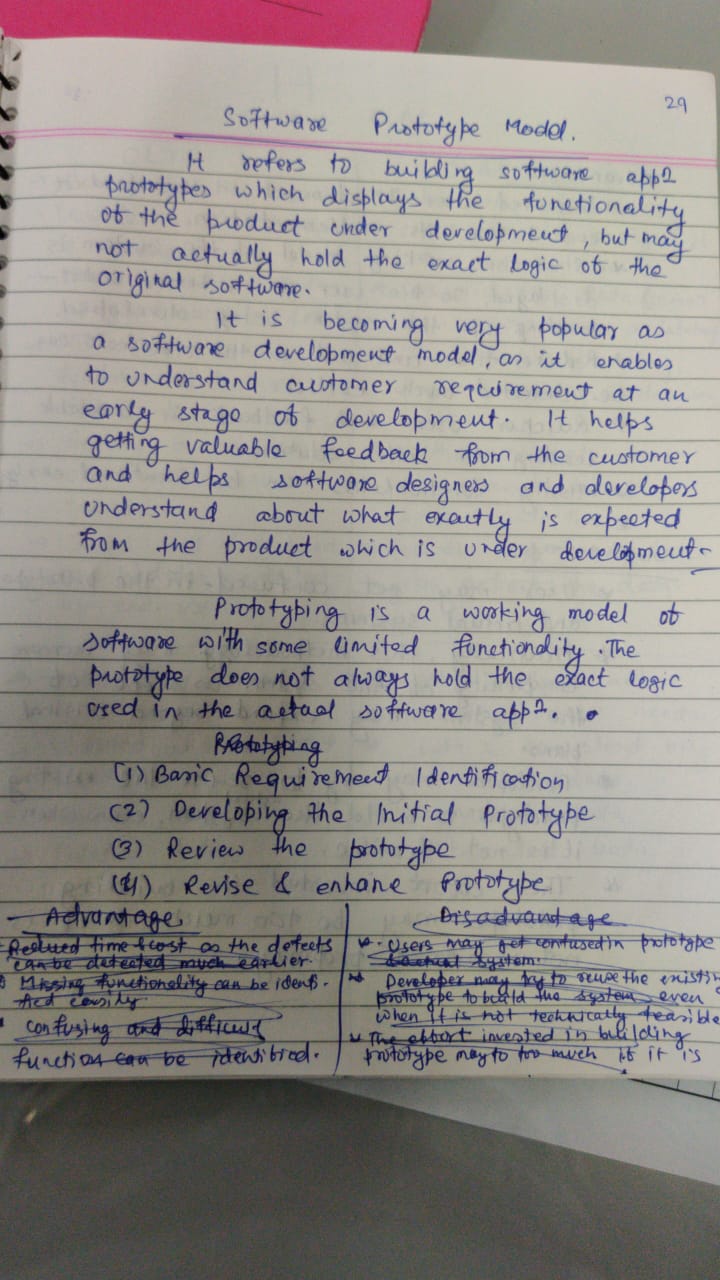 29
Software Prototype Model.
It refers to building software appⁿ
prototypes which displays the functionality
of the product under development, but may
not actually hold the exact logic of the
original software.
It is becoming very popular as
a software development model, as it enables
to understand customer requirement at an
early stage of development. It helps
getting valuable feedback from the customer
and helps software designers and developers
understand about what exactly is expected
from the product which is under development.
Prototyping is a working model of
software with some limited functionality. The
prototype does not always hold the exact logic
used in the actual software appⁿ.
Prototyping
(1) Basic Requirement Identification
(2) Developing the Initial Prototype
(3) Review the prototype
(4) Revise & enhane Prototype
Advantage
Reduced time & cost as the defects
can be detected much earlier.
Missing functionality can be identi-
fied easily
Confusing and difficult
function can be identified.
Disadvantage
Users may get confused in prototype
& actual system.
Developer may try to reuse the existing
prototype to build the system even
when it is not technically feasible
The effort invested in building
prototype may to too much if it is